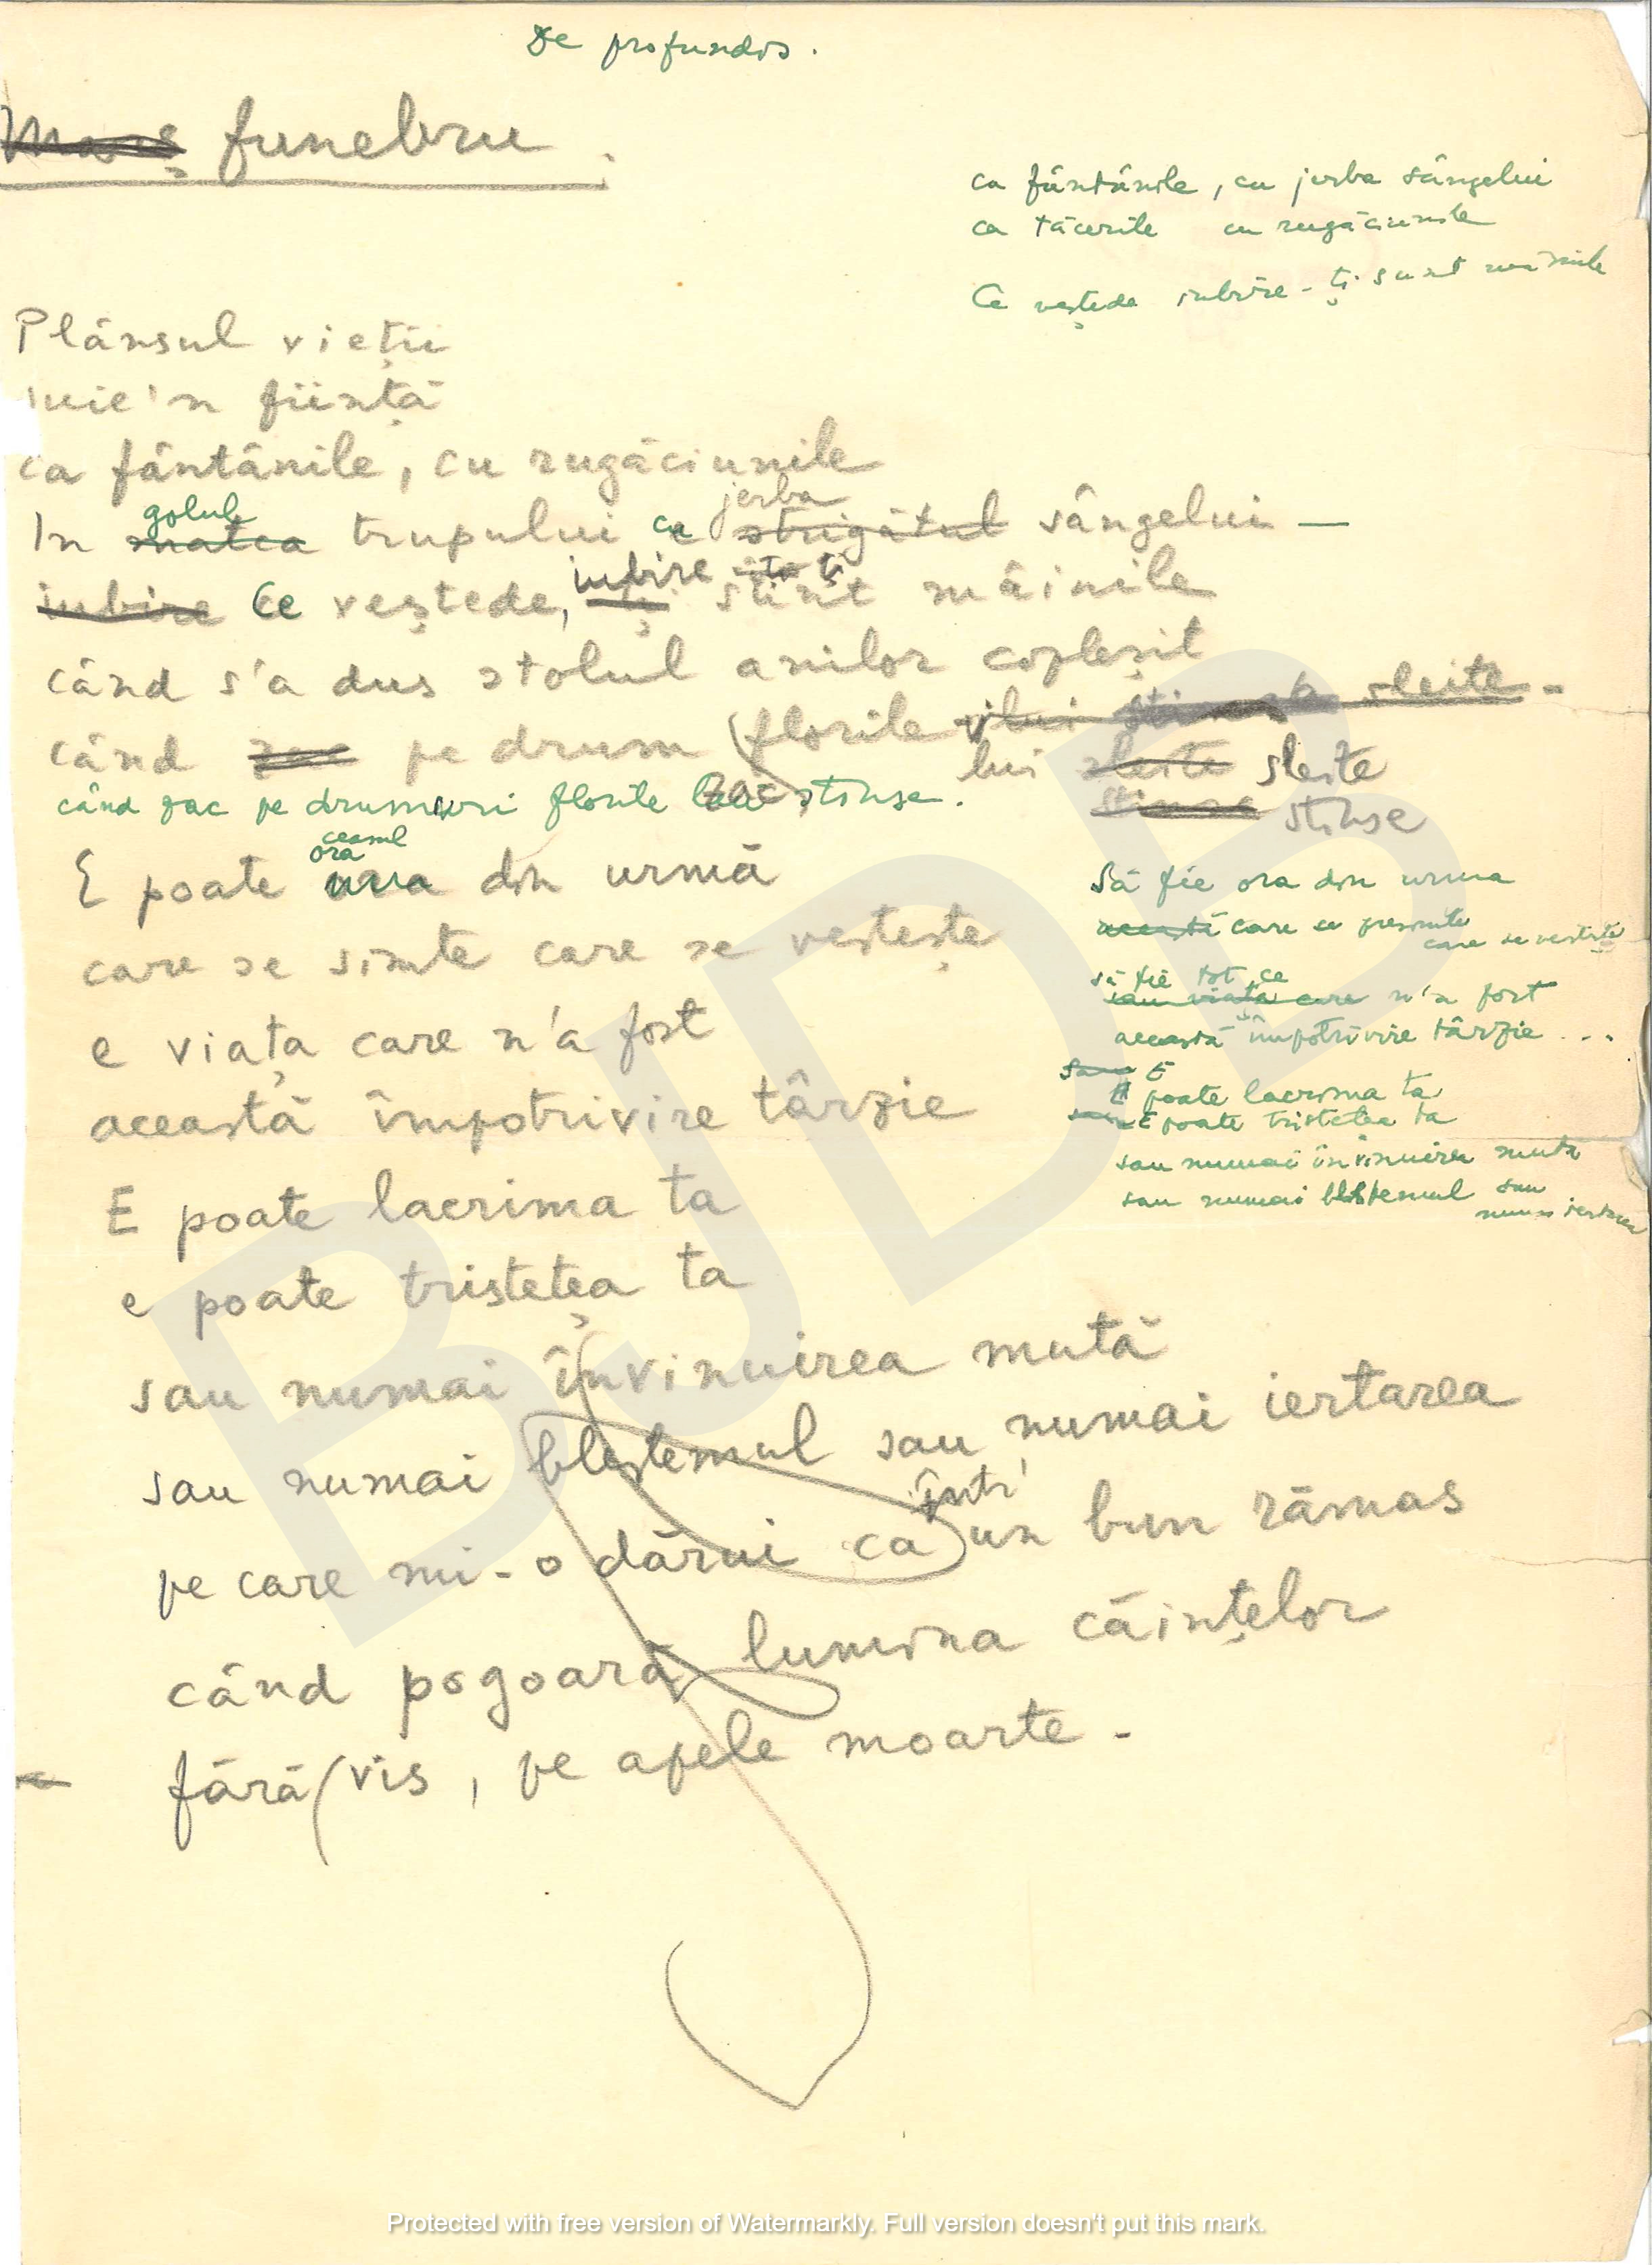 De profundis.
Marș funebru.
ca fântânile, cu jerba sângelui
ca tăcerile cu rugăciunile
Ce veștede iubire-ți sunt mâinile
Plânsul vieții
suie'n ființă
ca fântânile, cu rugăciunile
golul jerba
In matca trupului cu strigătul sângelui —
iubire ți
iubire Ce veștede, ți sunt mâinile
când s'a dus stolul anilor copleșit
când zac pe drum florile lui stinse sleite -
lui sleite sleite
stinse stinse
când zac pe drumuri florile lui stinse.
ceasul
ora
E poate ura din urmă
care se simte care se vestește
e viața care n'a fost
această împotrivire târzie
E poate lacrima ta
e poate tristețea ta
sau numai învinuirea mută
sau numai blestemul sau numai iertarea
într'
pe care mi-o dărui ca un bun rămas
când pogoară lumina căințelor
fără vis, pe apele moarte -
Să fie ora din urma
această care se presimte
care se vestește
să fie tot ce
sau viața care n'a fost
această împotrivire târzie ...
sau E
poate lacrima ta
sau E poate tristetea ta
sau numai învinuirea muta
sau numai blestemul sau
numai iertarea
BJDB
Protected with free version of Watermarkly. Full version doesn't put this mark.